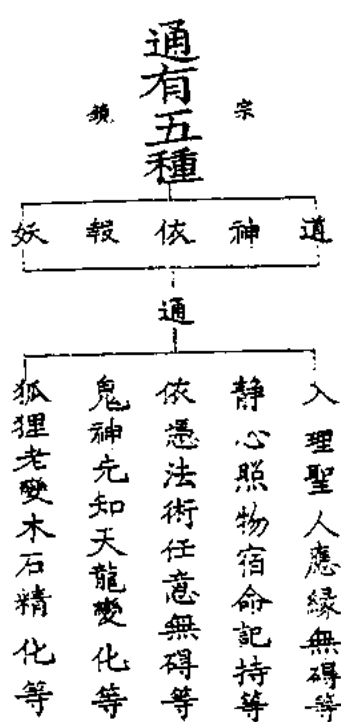 通有五種
宗鏡
道神依報妖
通
入理聖人應緣無礙等
靜心照物宿命記持等
依憑法術任意無碍等
鬼神先知天龍變化等
狐狸老變木石精化等